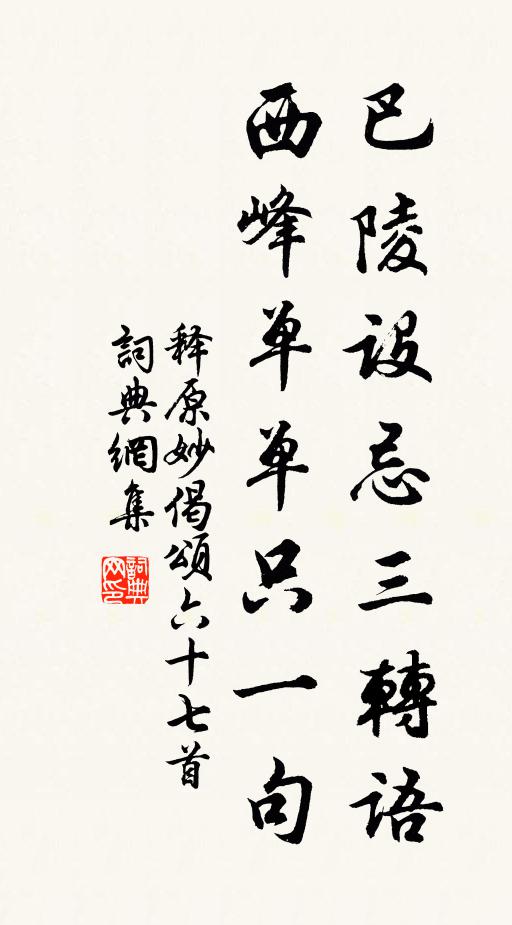 巴陵設忌三轉語
西峰单单只一句
释原妙偈頌六十七首
詞典網集
詞典网印